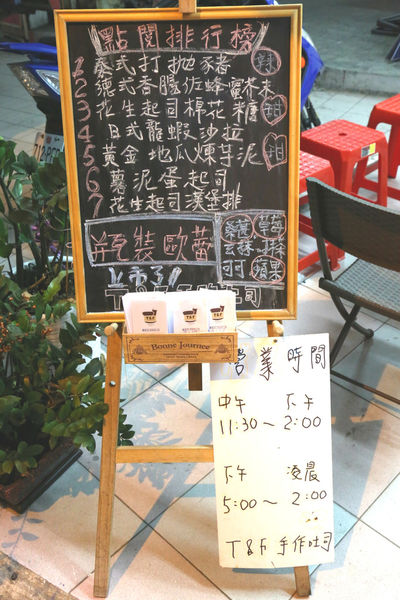 點閱排行榜
1 泰式打拋豬 辣
2 德式香腸佐蜂蜜芥末
3 花生起司棉花糖 甜
4 日式龍蝦沙拉
5 黃金地瓜煉芋泥 甜
6 薯泥蛋起司
7 花生起司漢堡排
瓶裝歐蕾
上市了
草莓
蘋果
T&F
T&F
T&F
Bonne Journée
營業時間
中午 下午
11:30~2:00
下午 凌晨
5:00~2:00
T&F手作吐司